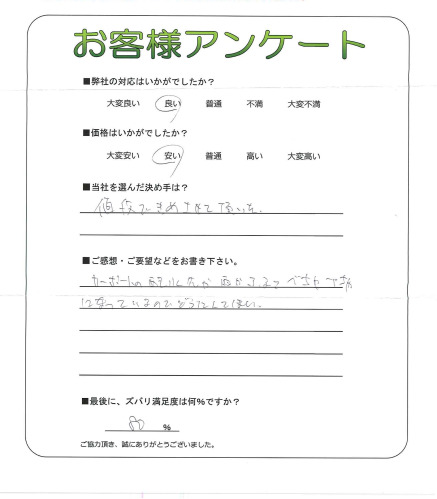 お客様アンケート
■弊社の対応はいかがでしたか?
大変良い 良い 普通 不満 大変不満
■価格はいかがでしたか?
大変安い 安い 普通 高い 大変高い
■当社を選んだ決め手は?
値段できめさせて頂いた.
■ご感想・ご要望などをお書き下さい。
カーポートの
になっているのでどうにかしてほしい.
■最後に、ズバリ満足度は何%ですか?
80 %
ご協力頂き、誠にありがとうございました。